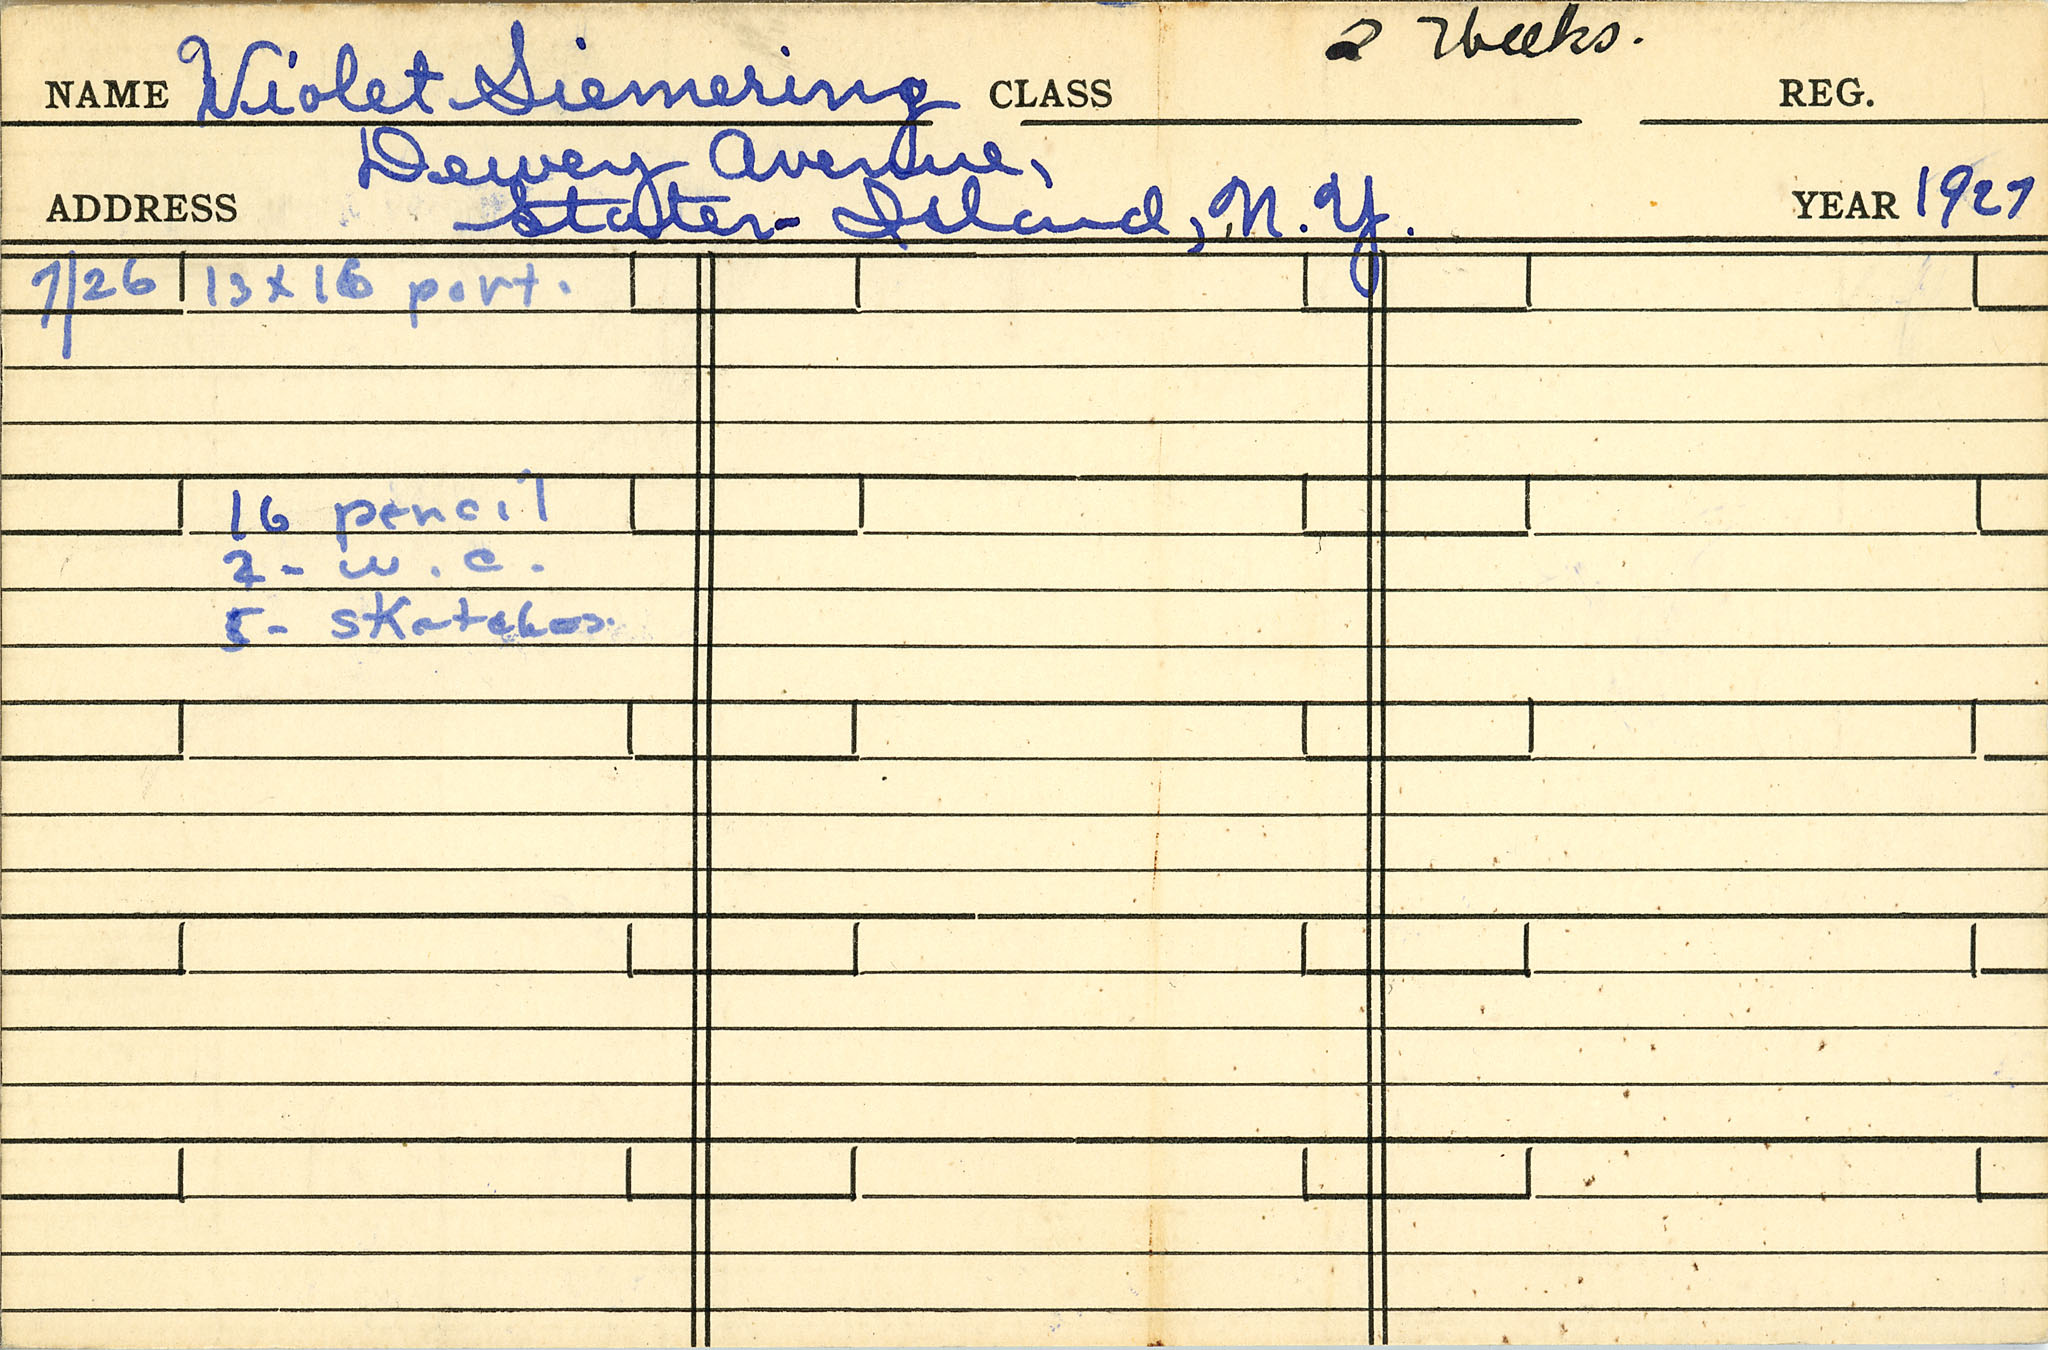 2 Weeks.
NAME Violet Siemering CLASS REG.
Dewey Avenue,
ADDRESS Staten Island, N.Y. YEAR 1927
7/26 13x16 port.
16 pencil
2- w.c.
5- sketches.